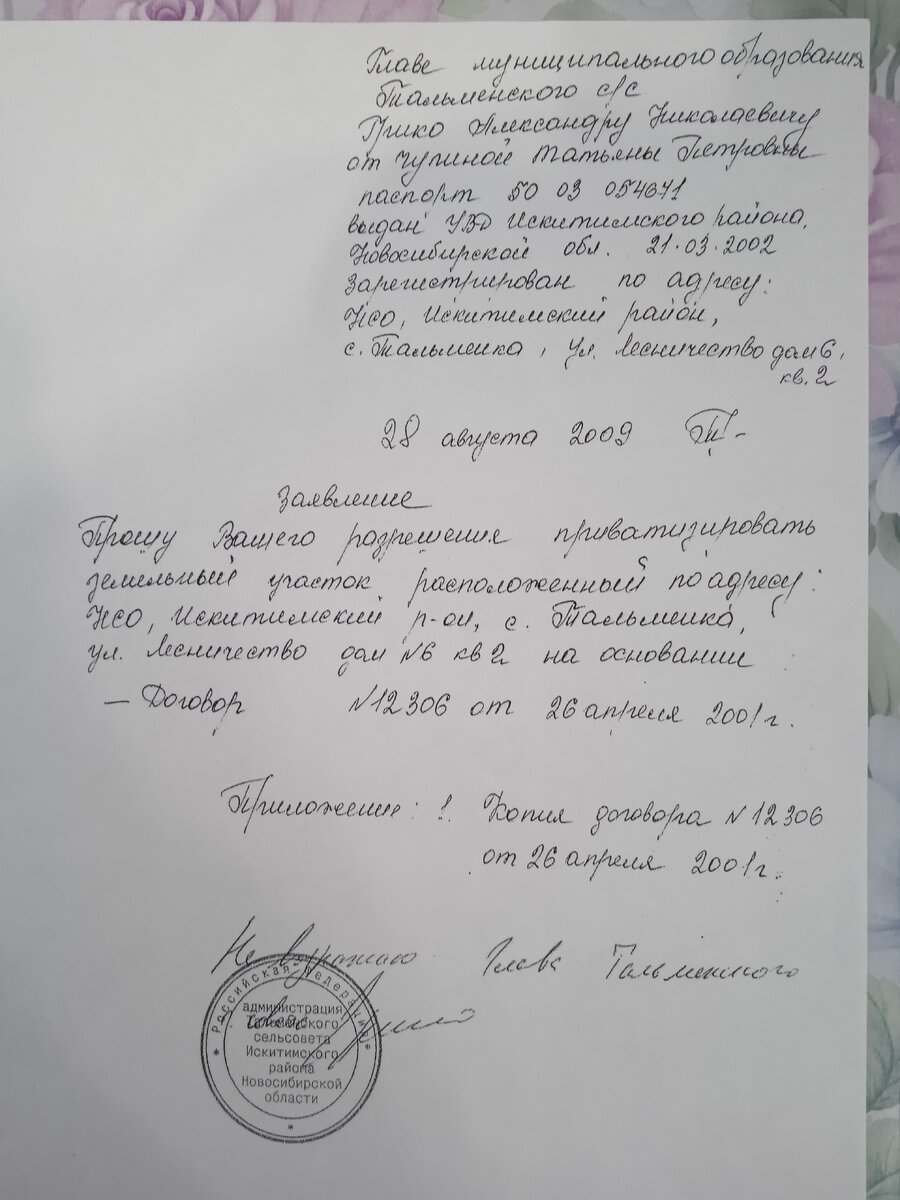 Главе муниципального образования
Тальменского с/с
Грико Александру Николаевичу
от Чупиной Татьяны Петровны
паспорт 50 03 054671
выдан УВД Искитимского района,
Новосибирской обл. 21.03.2002
Зарегистрирован по адресу:
НСО, Искитимский район,
с. Тальменка, ул. Лесничество дом 6,
кв. 2
28 августа 2009
Заявление
Прошу Вашего разрешения приватизировать
земельный участок расположенный по адресу:
НСО, Искитимский р-он, с. Тальменка,
ул. Лесничество дом №6 кв 2 на основании:
— Договор №12306 от 26 апреля 2001 г.
Приложение: 1. Копия договора №12306
от 26 апреля 2001 г.
Не возражаю Глава Тальменского
Российская Федерация
администрация
Тальменского
сельсовета
Искитимского
района
Новосибирской
области